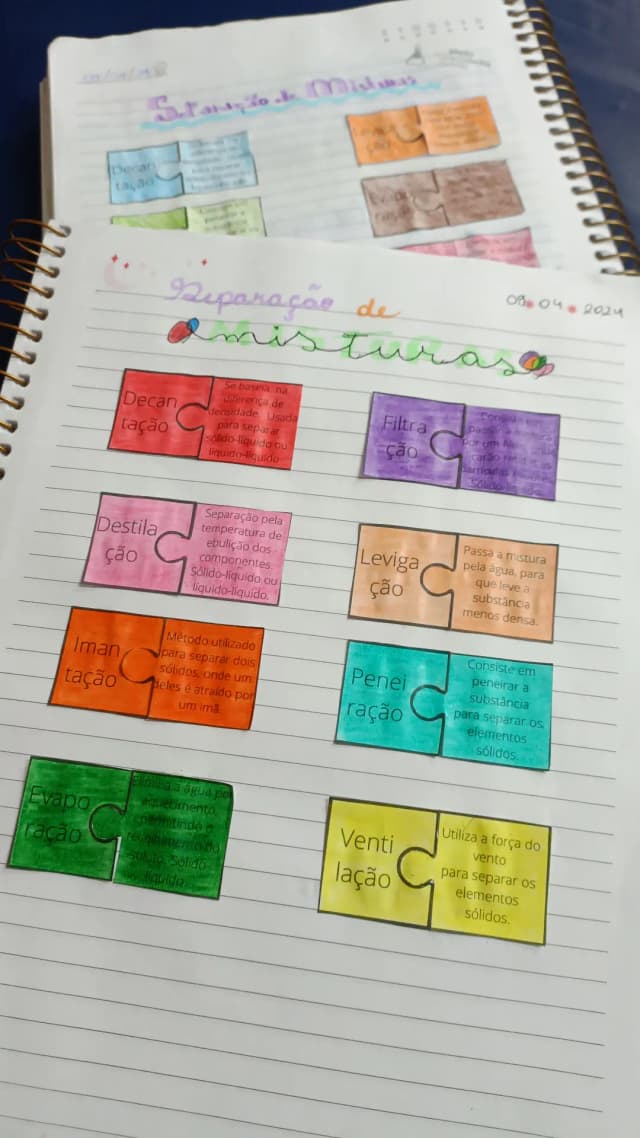 Separação de Misturas
Decan
tação
Separação de
09.04.2024
misturas
Decan
tação
Se baseia na
diferença de
densidade. Usada
para separar
sólido-líquido ou
líquido-líquido
Filtra
ção
por um
Destila
ção
Separação pela
temperatura de
ebulição dos
componentes.
Sólido-líquido ou
líquido-líquido.
Leviga
ção
Passa a mistura
pela água, para
que leve a
substância
menos densa.
Iman
tação
Método utilizado
para separar dois
sólidos, onde um
deles é atraído por
um imã.
Penei
ração
Consiste em
peneirar a
substância
para separar os
elementos
sólidos.
Evapo
ração
a água por
aquecimento,
permitindo o
recolhimento do
sólido. Sólido
líquido.
Venti
lação
Utiliza a força do
vento
para separar os
elementos
sólidos.